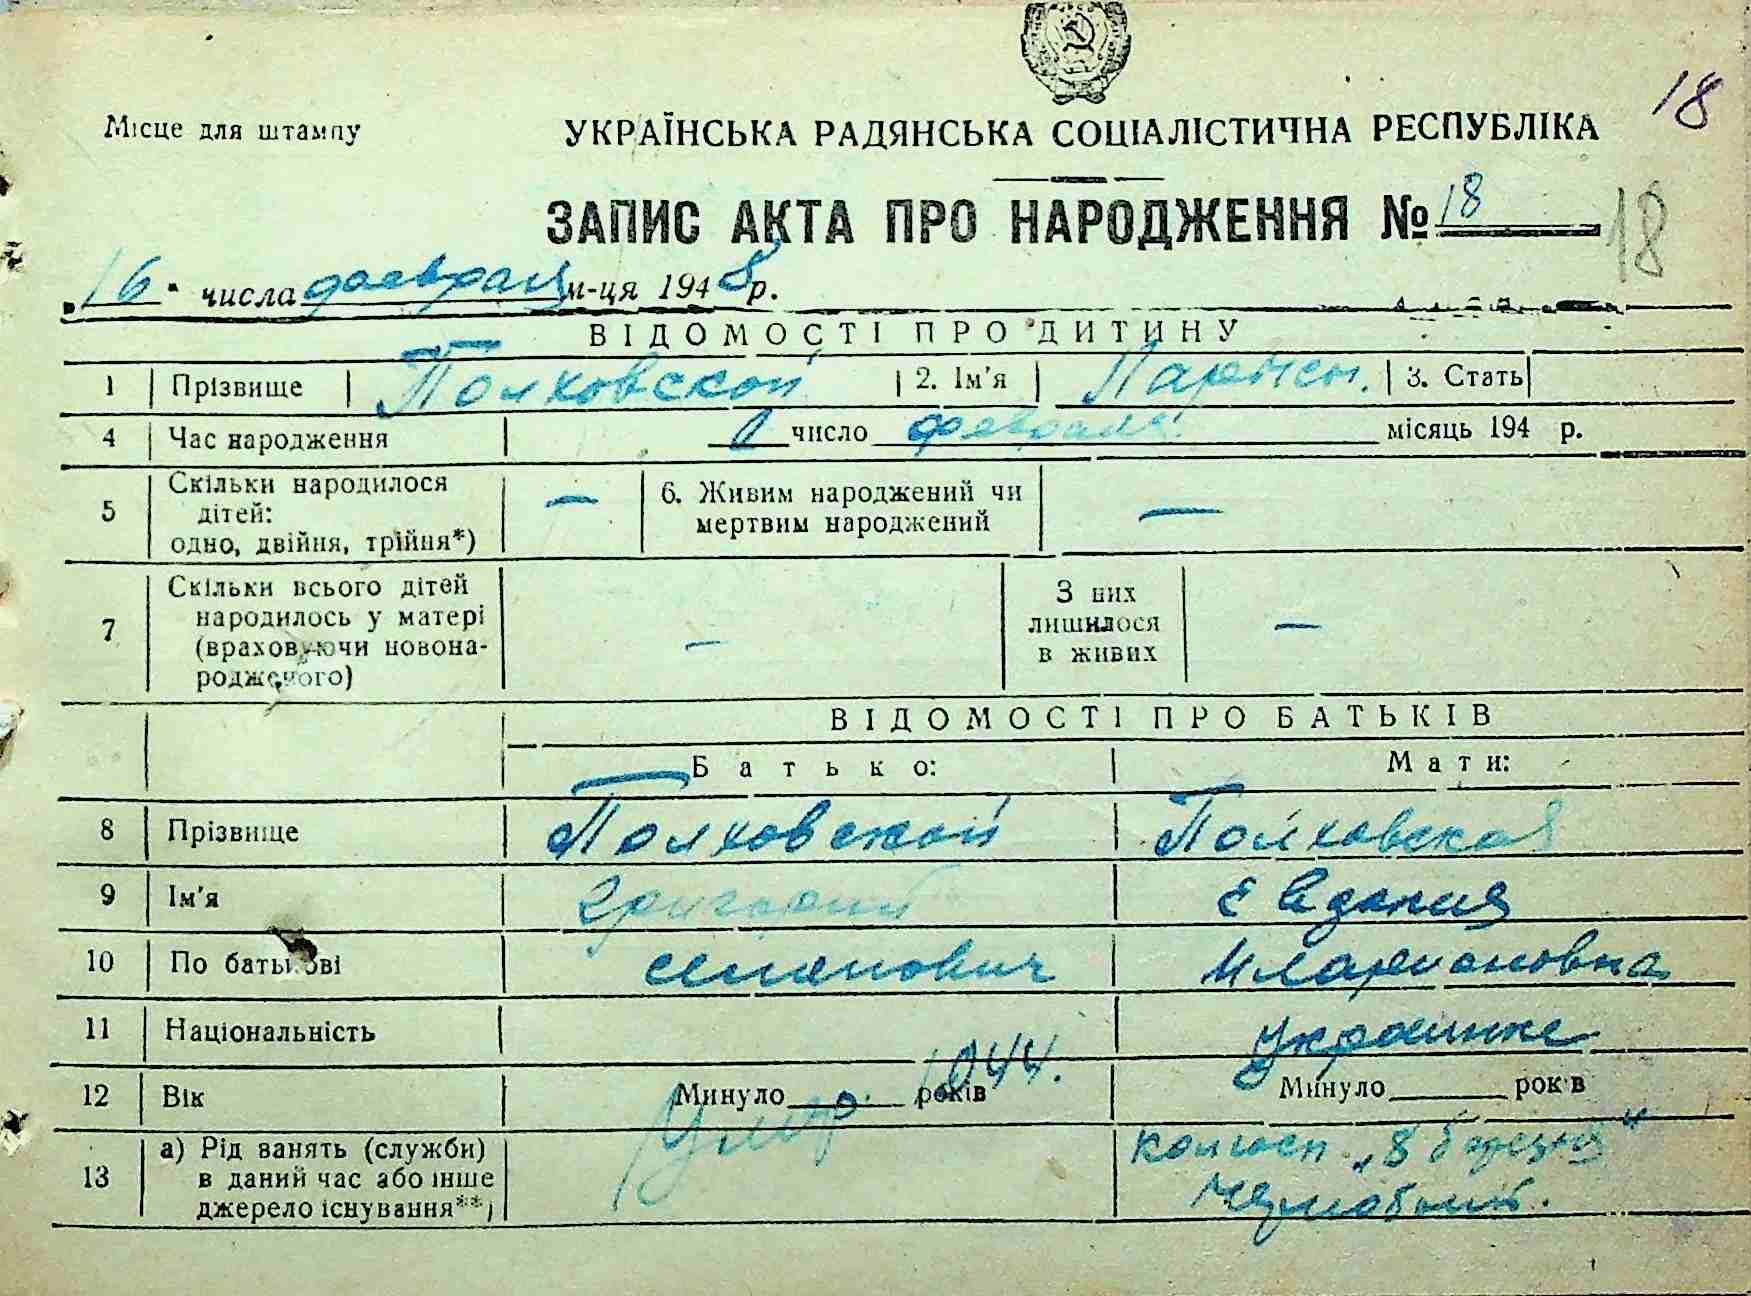 18
Місце для штампу
УКРАЇНСЬКА РАДЯНСЬКА СОЦІАЛІСТИЧНА РЕСПУБЛІКА
ЗАПИС АКТА ПРО НАРОДЖЕННЯ № 18
18
„16" числа февраля м-ця 1948 р.
ВІДОМОСТІ ПРО ДИТИНУ
1 Прізвище Полховской 2. Ім'я 3. Стать
4 Час народження число февраля місяць 194 р.
5 Скільки народилося дітей: одно, двійня, трійня*) — 6. Живим народжений чи мертвим народжений —
7 Скільки всього дітей народилось у матері (враховуючи новонародженого) — З них лишилося в живих —
ВІДОМОСТІ ПРО БАТЬКІВ
Батько: Мати:
8 Прізвище Полховской Полховская
9 Ім'я Григорий Евдокия
10 По батькові Семенович Иларионовна
11 Національність украинка
12 Вік Минуло років Минуло років
умер 1944.
13 а) Рід занять (служби) в даний час або інше джерело існування**) колгосп „8 березня"